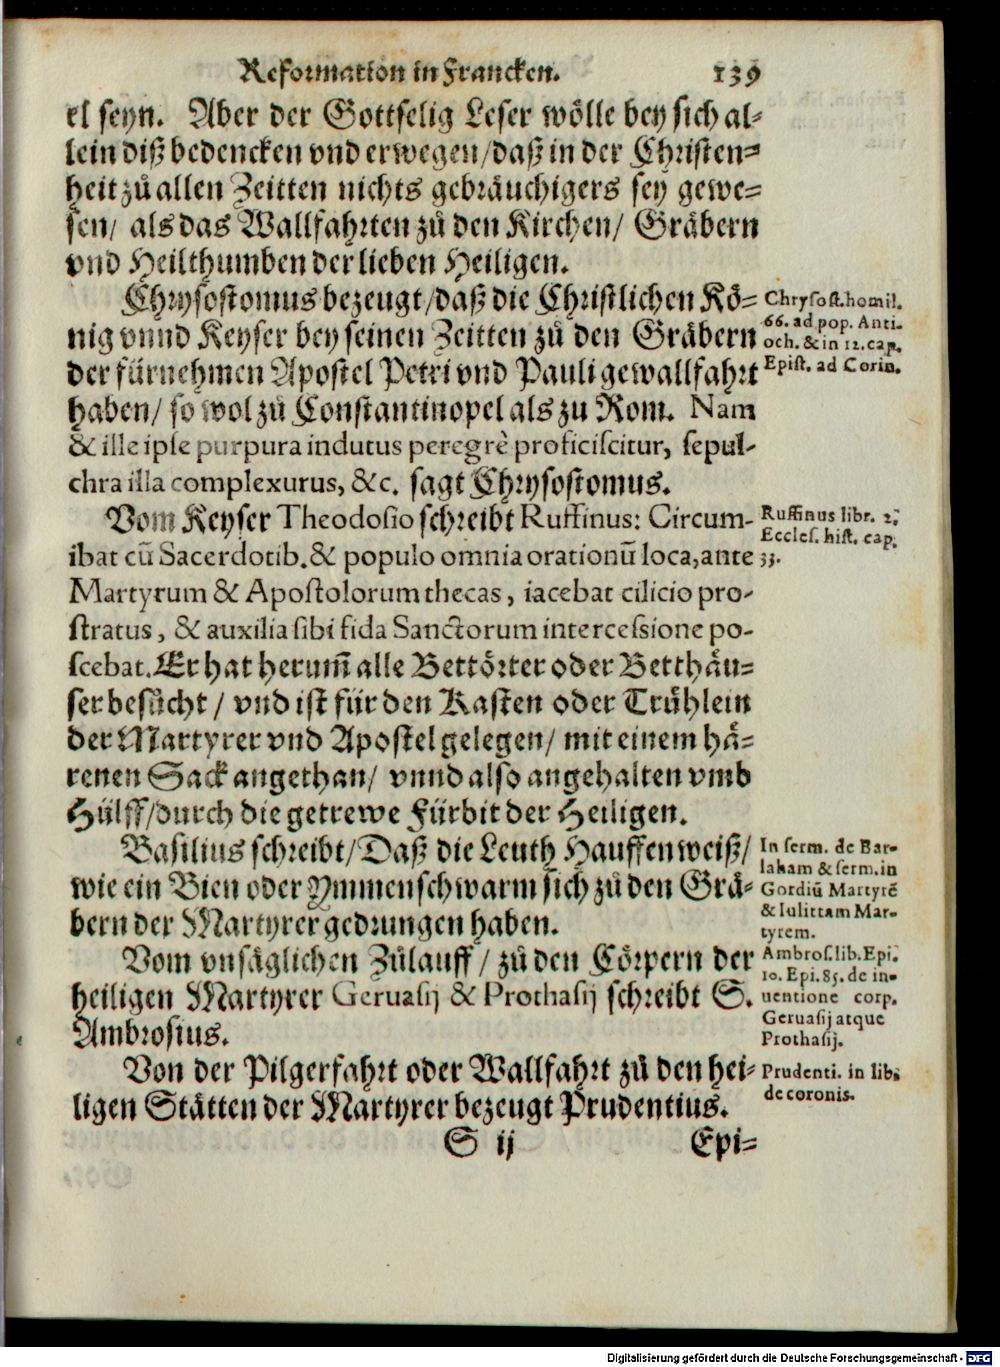 Reformation in Francken. 139
el seyn. Aber der Gottselig Leser wölle bey sich al-
lein diß bedencken vnd erwegen/daß in der Christen-
heit zů allen Zeitten nichts gebräuchigers sey gewe-
sen/ als das Wallfahrten zů den Kirchen/ Gräbern
vnd Heilthumben der lieben Heiligen.
Chrysostomus bezeugt/daß die Christlichen Kö-
nig vnnd Keyser bey seinen Zeitten zů den Gräbern
der fürnehmen Apostel Petri vnd Pauli gewallfahrt
haben/ so wol zů Constantinopel als zu Rom. Nam
& ille ipse purpura indutus peregrè proficiscitur, sepul-
chra illa complexurus, &c. sagt Chrysostomus.
Chrysost. homil.
66. ad pop. Anti-
och. & in 12. cap.
Epist. ad Corin.
Vom Keyser Theodosio schreibt Ruffinus: Circum-
ibat cū Sacerdotib. & populo omnia orationū loca, ante
Martyrum & Apostolorum thecas, iacebat cilicio pro-
stratus, & auxilia sibi fida Sanctorum intercessione po-
scebat. Er hat herum̃ alle Bettörter oder Betthäu-
ser besůcht/ vnd ist für den Kasten oder Trühlein
der Martyrer vnd Apostel gelegen/ mit einem hä-
renen Sack angethan/ vnnd also angehalten vmb
Hülff/durch die getrewe Fürbit der Heiligen.
Ruffinus libr. 2.
Eccles. hist. cap.
33.
Basilius schreibt/Daß die Leuth Hauffenweiß/
wie ein Bien oder Ymmenschwarm sich zů den Grä-
bern der Martyrer gedrungen haben.
In serm. de Bar-
laham & serm. in
Gordiū Martyrē
& Iulittam Mar-
tyrem.
Vom vnsäglichen Zůlauff/ zů den Cörpern der
heiligen Martyrer Geruasij & Prothasij schreibt S.
Ambrosius.
Ambros. lib. Epi.
10. Epi. 85. de in-
uentione corp.
Geruasij atque
Prothasij.
Von der Pilgerfahrt oder Wallfahrt zů den hei-
ligen Stätten der Martyrer bezeugt Prudentius.
Prudenti. in lib.
de coronis.
S ij Epi-
Digitalisierung gefördert durch die Deutsche Forschungsgemeinschaft - DFG